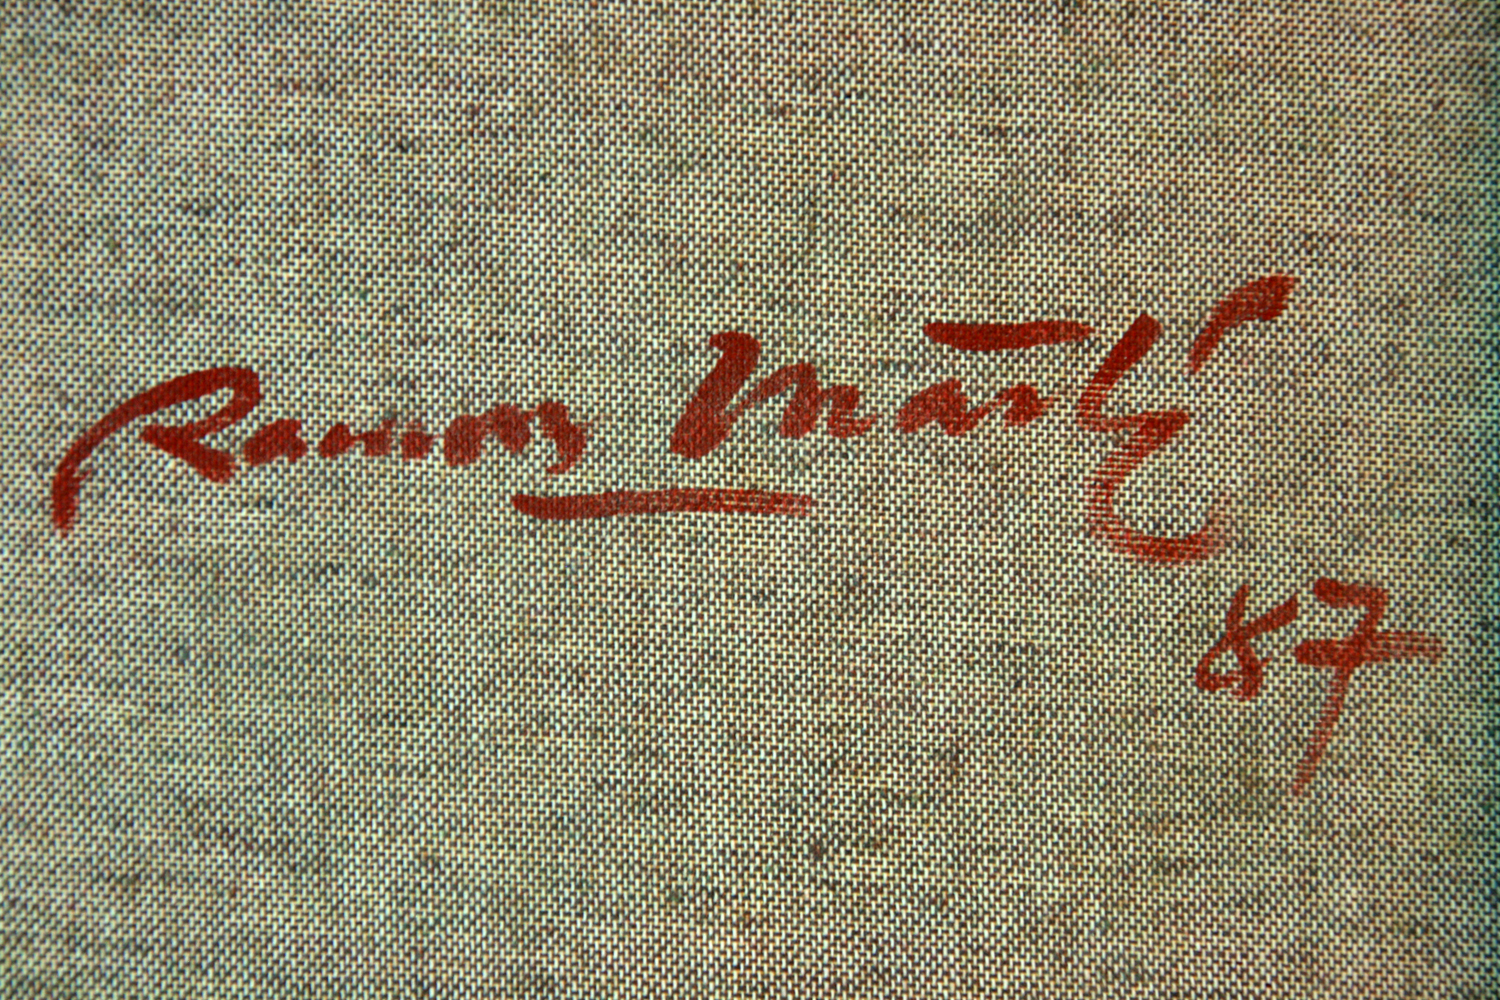 Ramon Martí
87